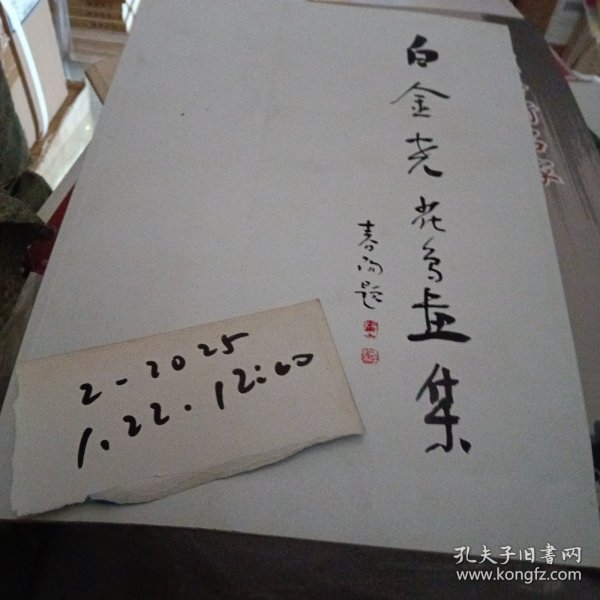 白金尧花鸟画集
春雨题
2-2025
1.22.12:00
孔夫子旧書网
www.kongfz.com